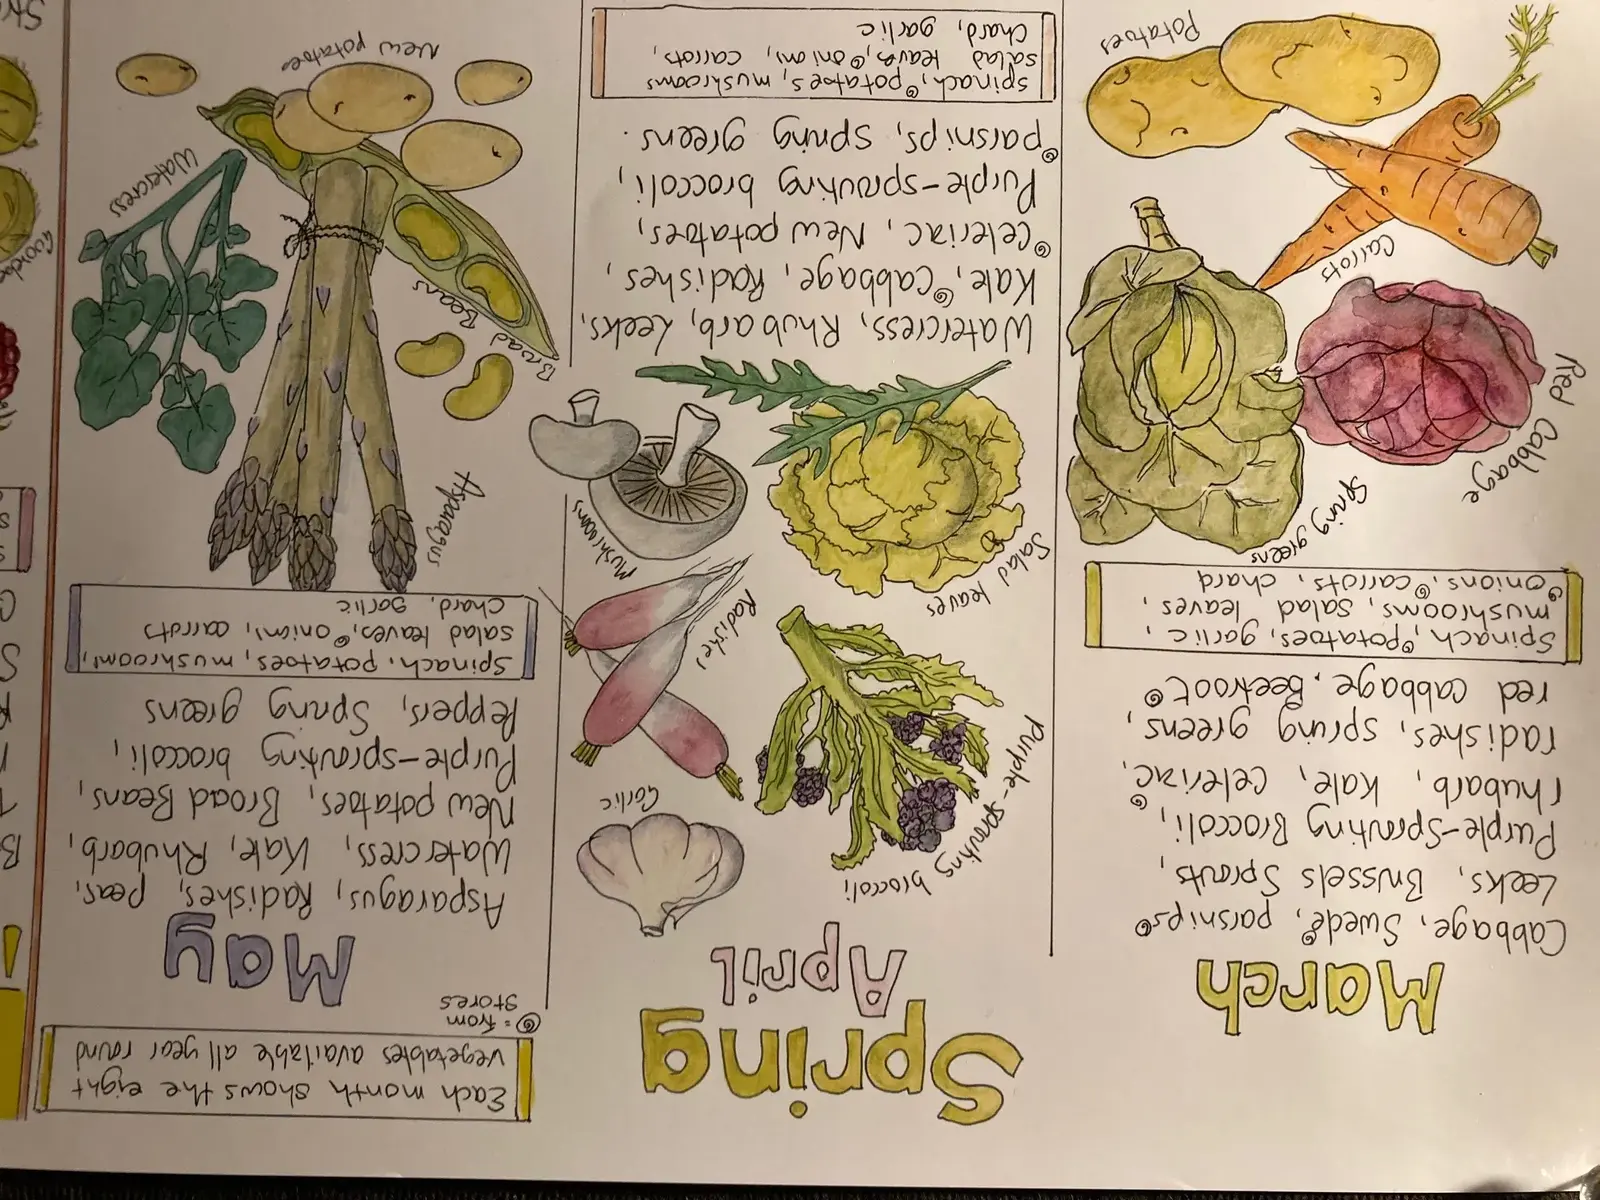 Spring
Each month shows the eight
vegetables available all year round
@ = from
stores
March
Cabbage, Swede@, parsnips@
Leeks, Brussels Sprouts,
Purple-Sprouting Broccoli,
rhubarb@, Kale, Celeriac,
radishes, spring greens,
red cabbage, Beetroot@
Spinach, @potatoes, garlic,
mushrooms, salad leaves,
@onions, @carrots, chard
Spring greens
Red Cabbage
Carrots
Potatoes
April
Garlic
Purple-sprouting broccoli
Radishes
Salad leaves
Mushrooms
Watercess, Rhubarb, Leeks,
Kale, @Cabbage, Radishes,
@Celeriac, New potatoes,
Purple-sprouting broccoli,
@parsnips, spring greens.
spinach, @potatoes, mushrooms
salad leaves, @onions, carrots,
chard, garlic
May
Asparagus, Radishes, peas,
Watercress, Kale, Rhubarb,
New potatoes, Broad Beans,
Purple-sprouting broccoli,
Peppers, Spring greens
Spinach, potatoes, mushrooms,
salad leaves, @onions, carrots
chard, garlic
Asparagus
Broad Beans
Watercress
New potatoes